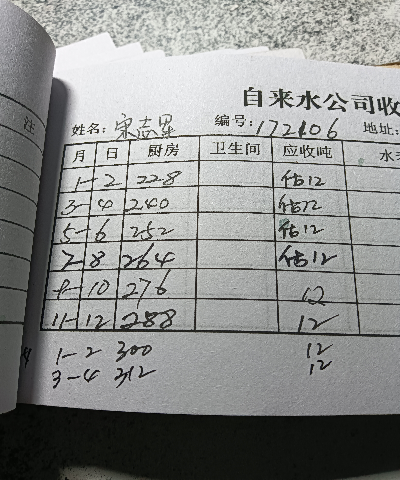 注
自来水公司收
姓名: 宋志星 编号: 172106 地址:
月 日 厨房 卫生间 应收吨 水
1-2 228 估12
3-4 240 估12
5-6 252 估12
7-8 264 估12
9-10 276 12
11-12 288 12
1-2 300 12
3-4 312 12